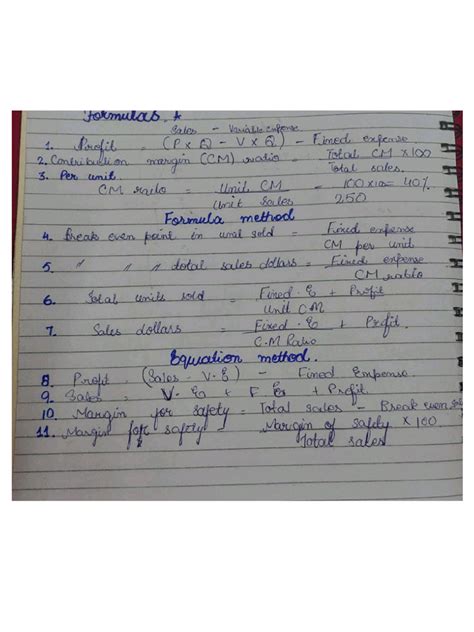 Formulas
Sales - Variable expense
1. Profit = (P x Q - V x Q) - Fixed expense
2. Contribution margin (CM) ratio = Total CM x 100
Total sales.
3. Per unit
CM ratio = Unit CM = 100 x 100 = 40%
Unit Sales 250
Formula method
4. Break even point in unit sold = Fixed expense
CM per unit
5. " " " total sales dollars = Fixed expense
CM ratio
6. Total units sold = Fixed . E + Profit
Unit CM
7. Sales dollars = Fixed . E + Profit.
C.M Ratio
Equation method.
8. Profit = (Sales - V. E) - Fixed Expense.
9. Sales = V. E + F. E + Profit
10. Margin for safety = Total sales - Break even
11. Margin for safety Margin of safety x 100
Total sales